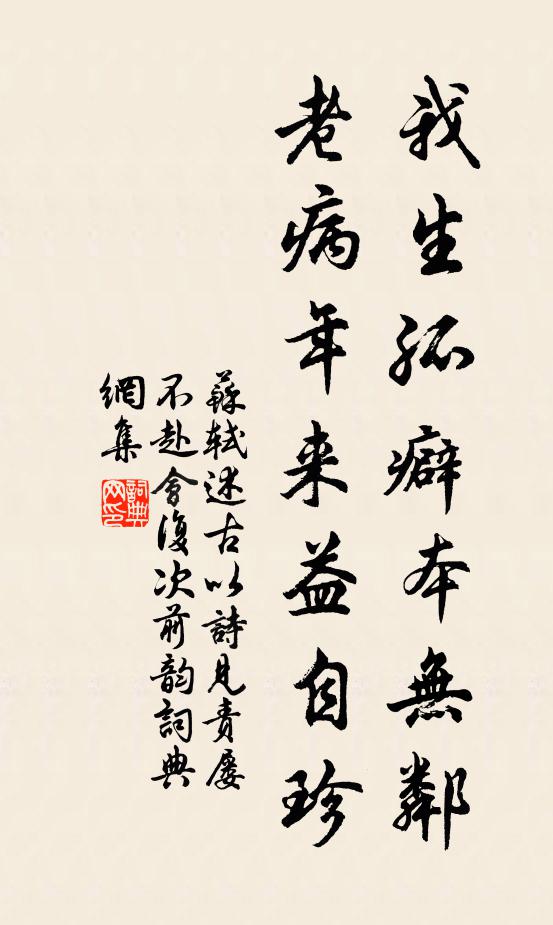 我生孤癖本無鄰
老病年来益自珍
蘇軾述古以詩見責屡
不赴會復次前韵詞典
網集
詞典
网印